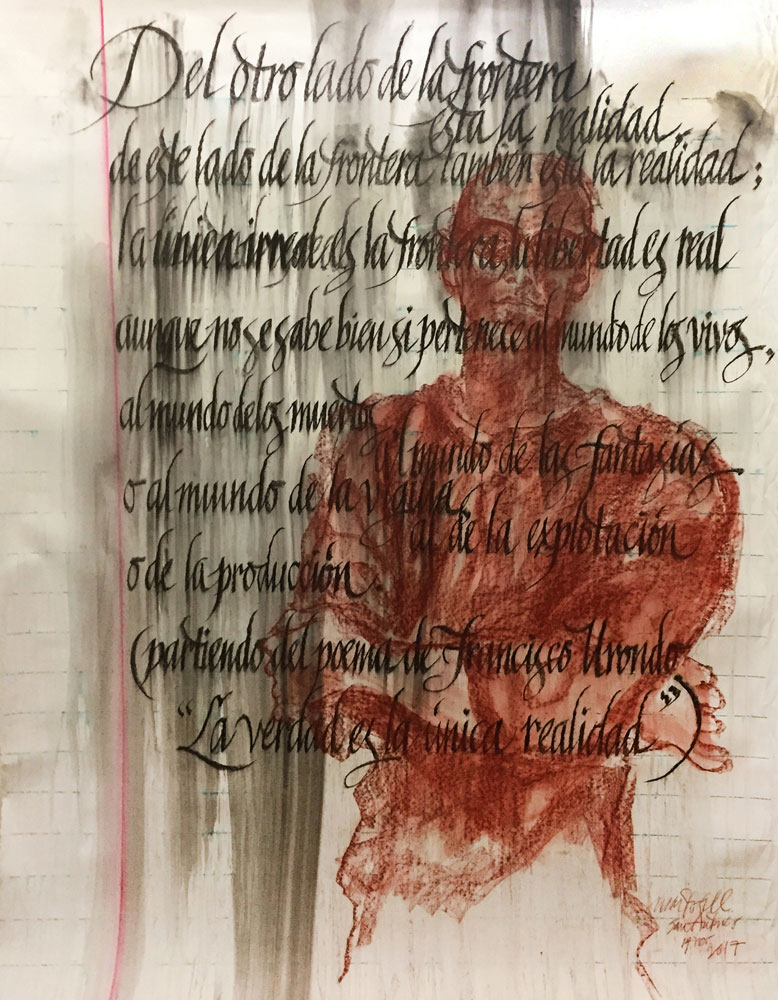 Del otro lado de la frontera
está la realidad,
de este lado de la frontera también está la realidad;
la única irreal es la frontera, la libertad es real
aunque no se sabe bien si pertenece al mundo de los vivos,
al mundo de los muertos
al mundo de las fantasías
o al mundo de la vigilia,
al de la explotación
o de la producción.
(partiendo del poema de Francisco Urondo
"La verdad es la única realidad")
2017